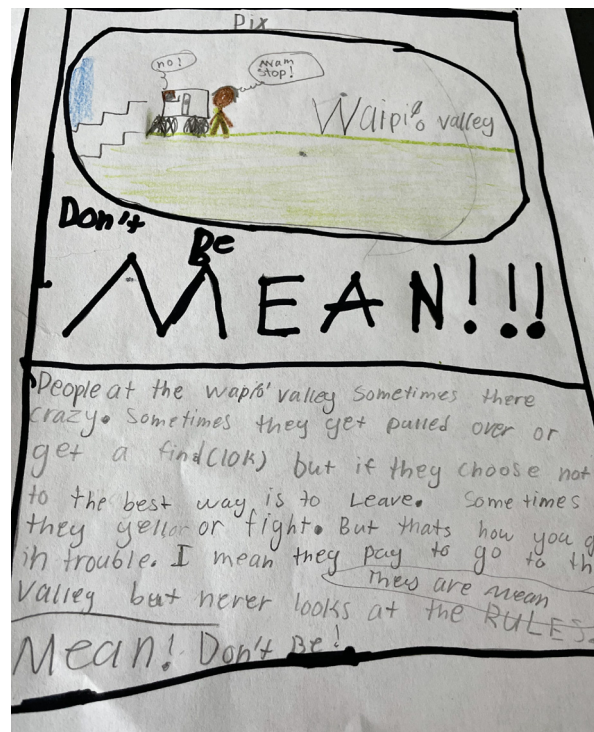 Pix
no!
mam
stop!
Waipi'o valley
Don't
Be
MEAN!!!
People at the wapio' valley sometimes there
crazy. Sometimes they get pulled over or
get a find(10k) but if they choose not
to the best way is to Leave. Sometimes
they yell or fight. But thats how you g
in trouble. I mean they pay to go to th
valley but never looks at the RULES.
They are mean
Mean! Don't Be!